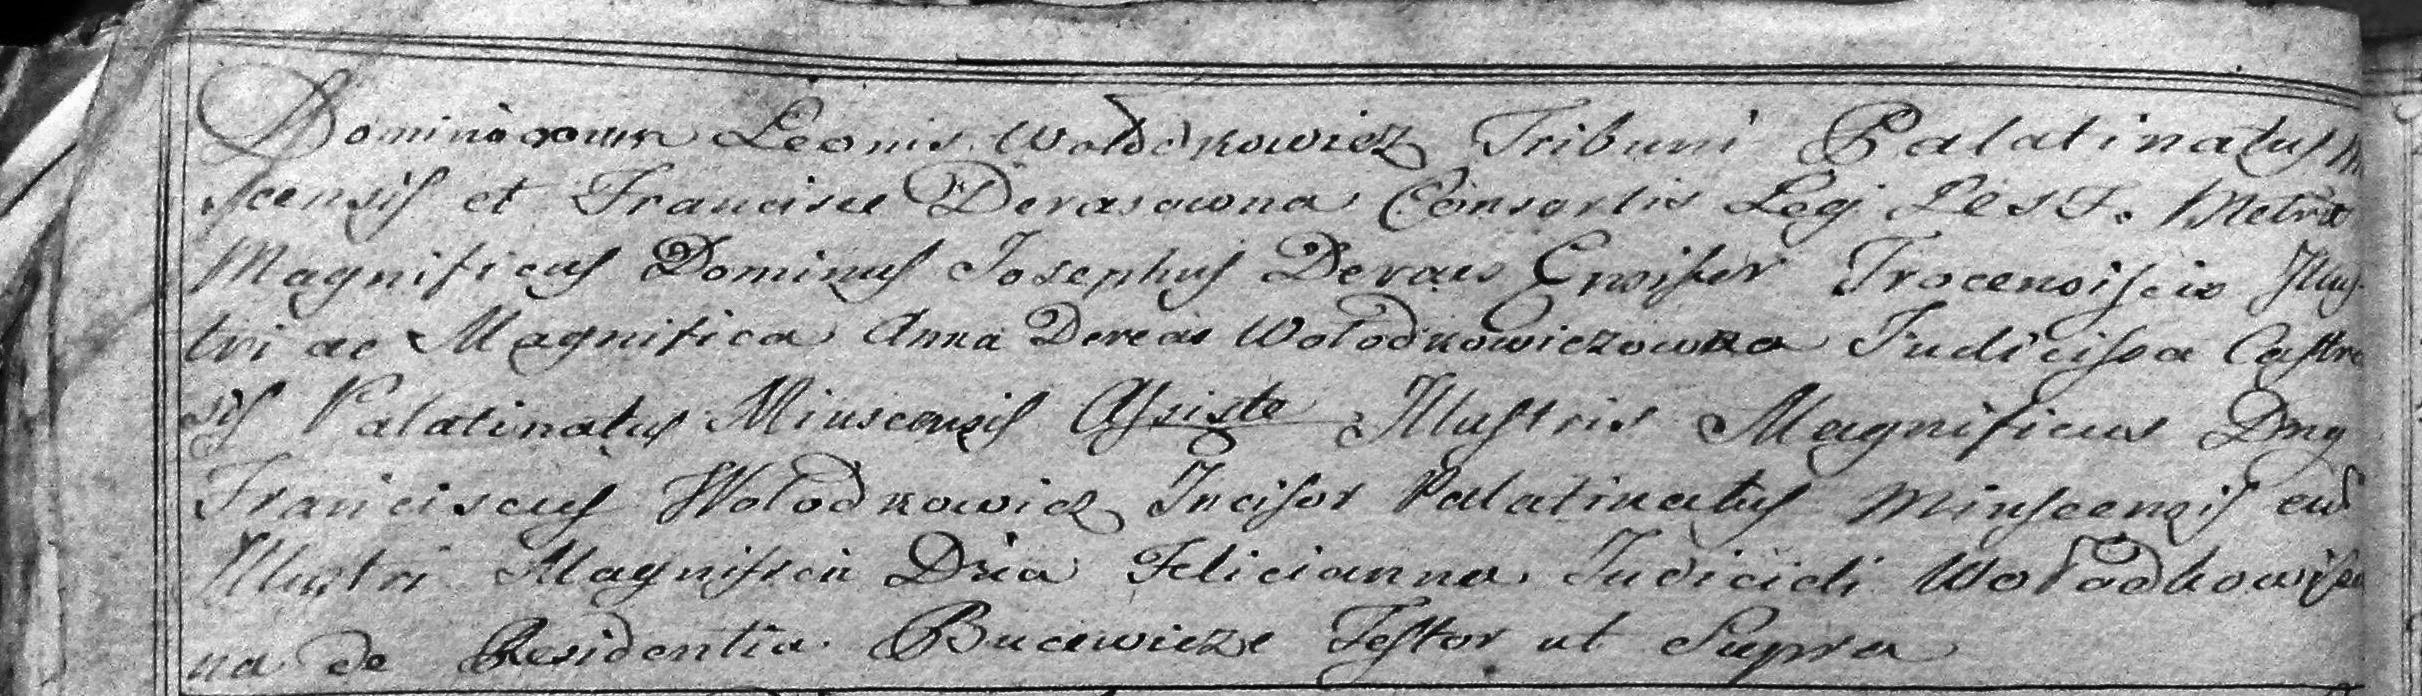 Dominorum Leonis Wołodkowicz Tribuni Palatinatus M
scensis et Francisce Derasowna Consortis Legi Les F. Metrix
Magnificus Dominus Josephus Deraus Ensifer Trocensis cu Illus
tri ac Magnifica Anna Dereas Wołodkowiczowna Judicissa Castre
sis Palatinatus Minscensis Assiste Illustris Magnificus Dng
Franciscus Wołodkowicz Incisor Palatinatus Minscensis cu
Illustri Magnifica Dna Felicianna Judicidi Wołodkowiszo
na de Residentia Bucewicze Testor ut Supra